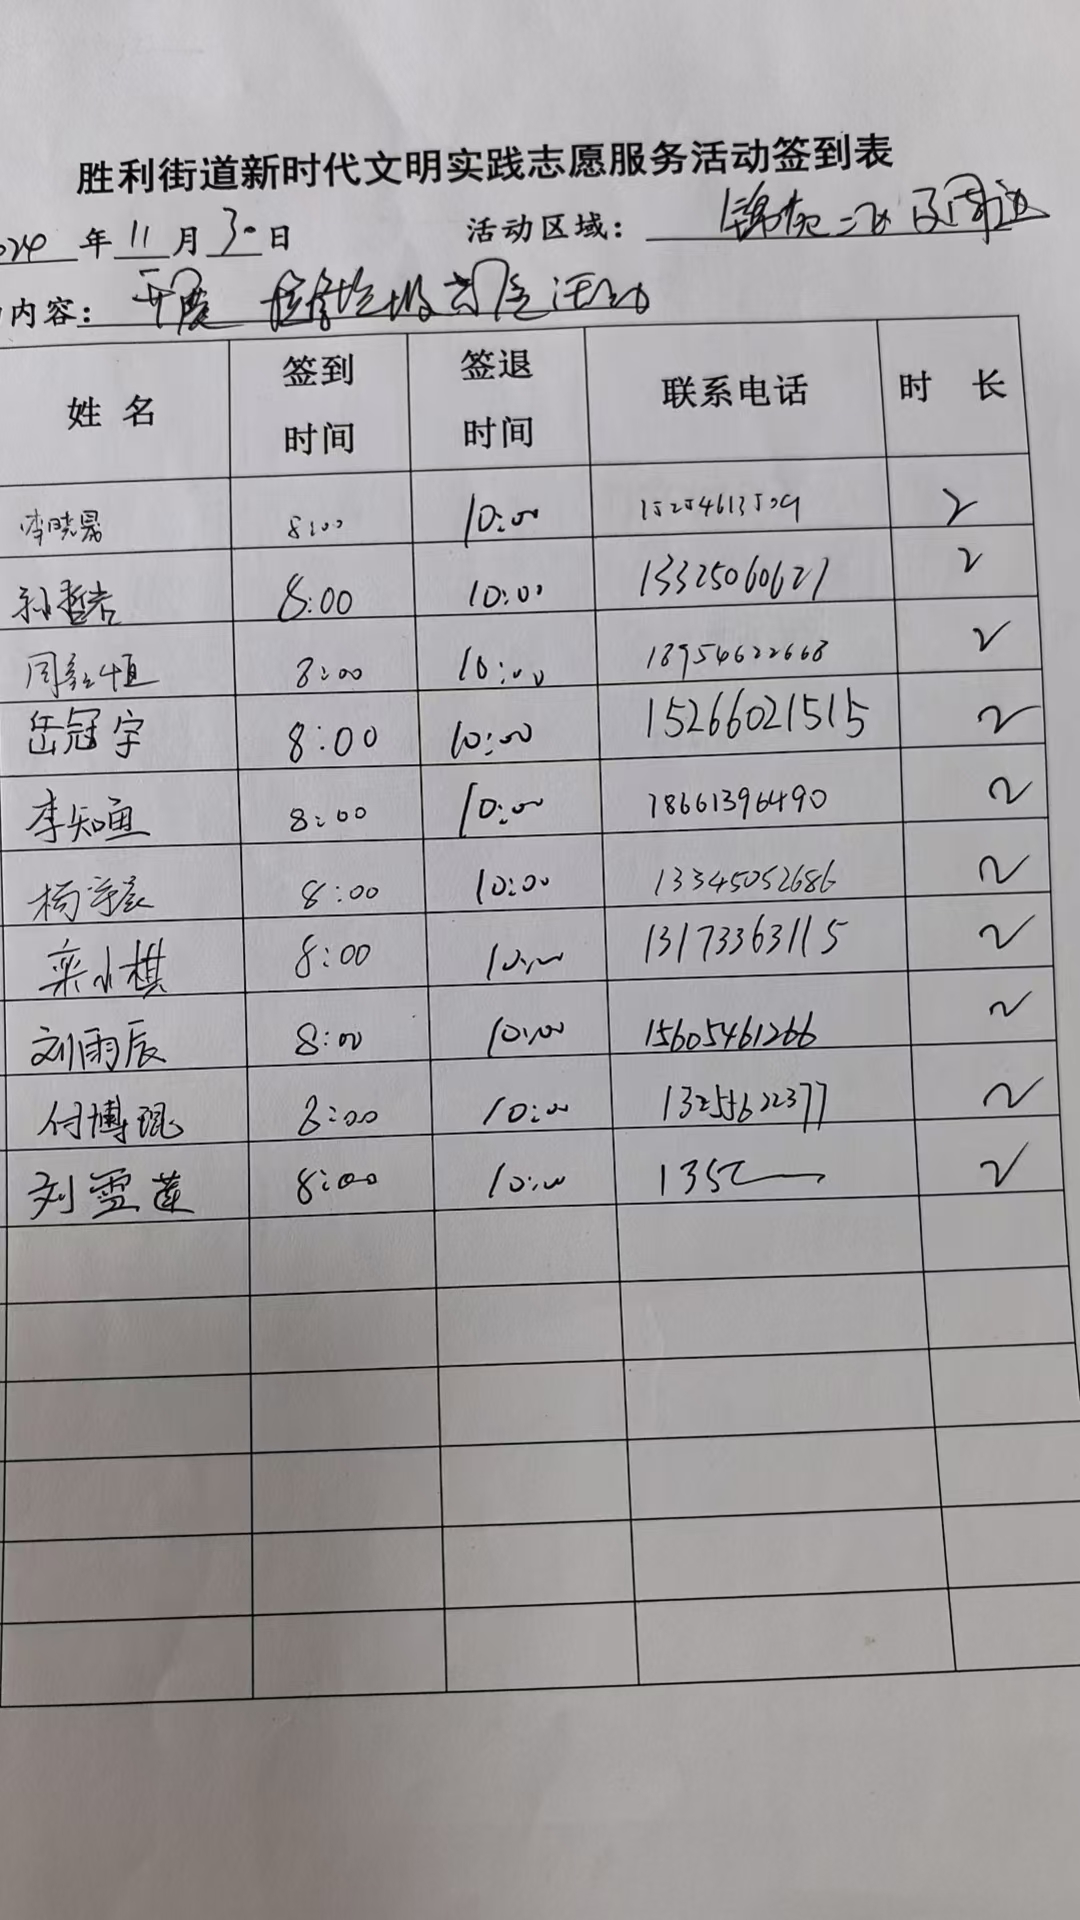 胜利街道新时代文明实践志愿服务活动签到表
024 年 11 月 30 日 活动区域: 锦苑二社区周边
内容: 开展 捡拾垃圾志愿活动
姓 名 签到时间 签退时间 联系电话 时 长
李晓晨 8:00 10:00 15254613509 2
孙哲浩 8:00 10:00 13325060627 2
周 恒 8:00 10:00 18954622668 2
岳冠宇 8:00 10:00 15266021515 2
李知通 8:00 10:00 18661396490 2
杨 8:00 10:00 13345052686 2
栾小棋 8:00 10:00 13173363115 2
刘雨辰 8:00 10:00 15605461266 2
付博琨 8:00 10:00 13255622377 2
刘雪莲 8:00 10:00 135 2